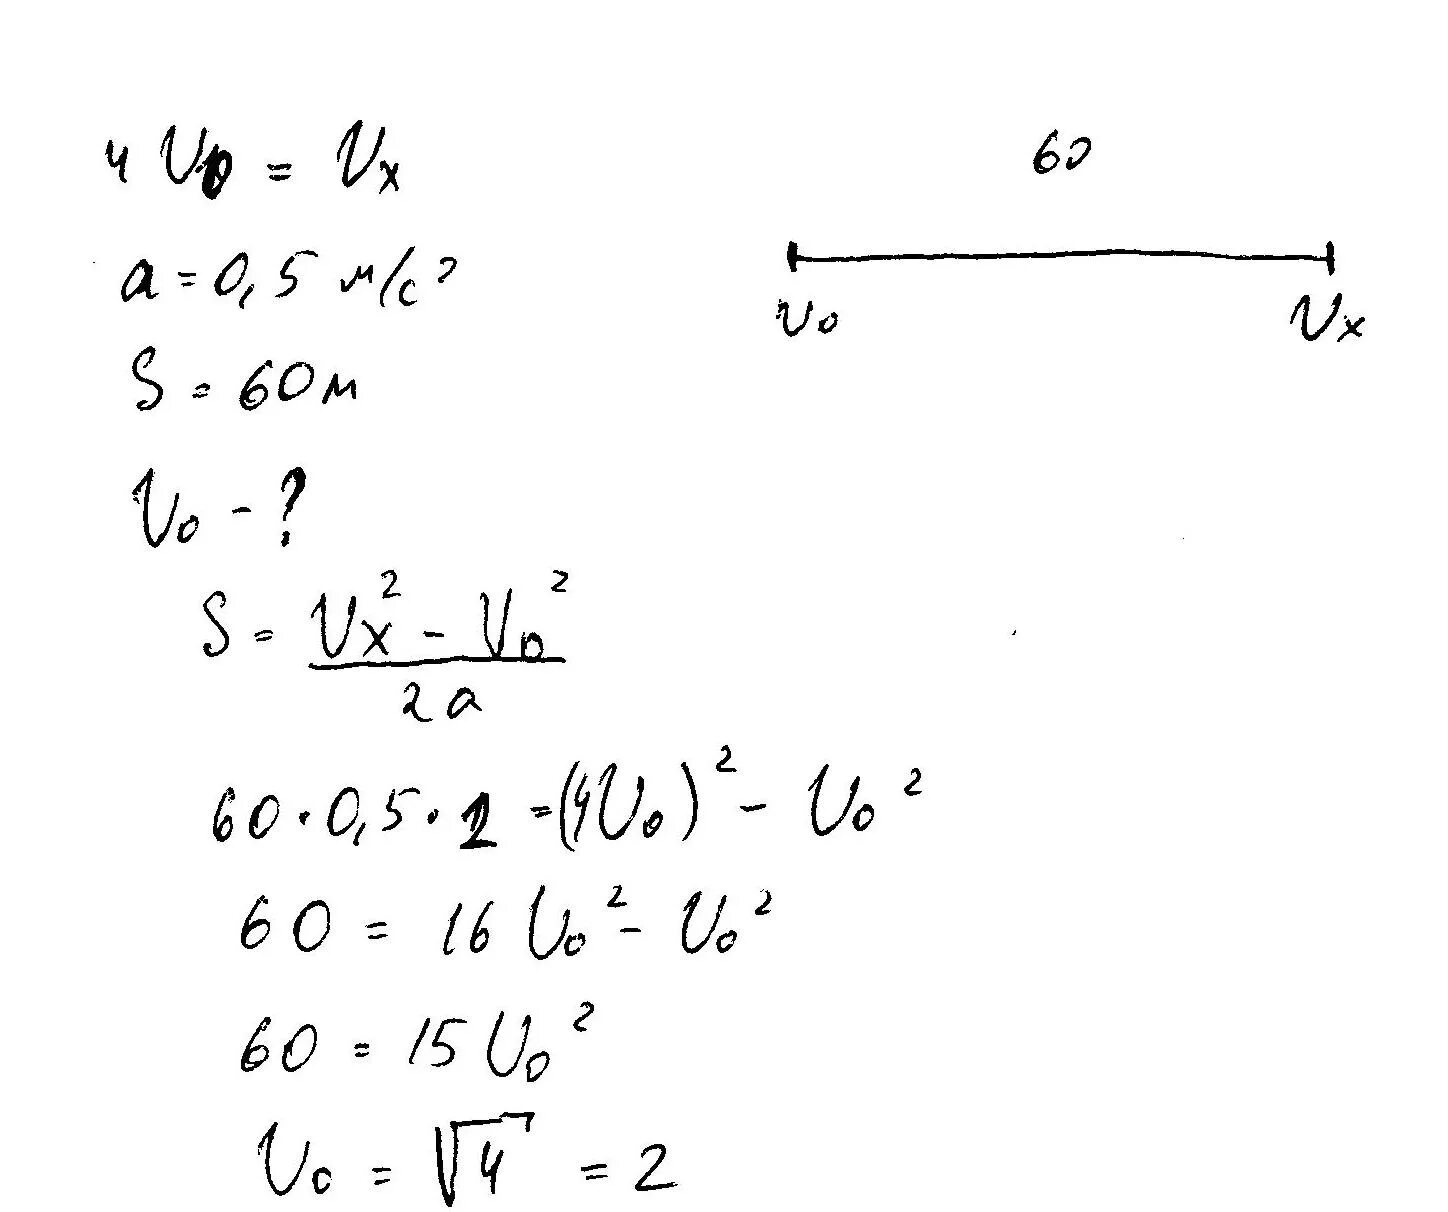 4 V₀ = Vₓ
a = 0,5 м/с²
S = 60м
V₀ - ?
60
V₀ Vₓ
S = Vₓ² - V₀²
2a
60 · 0,5 · 2 = (4V₀)² - V₀²
60 = 16 V₀² - V₀²
60 = 15 V₀²
V₀ = √4 = 2